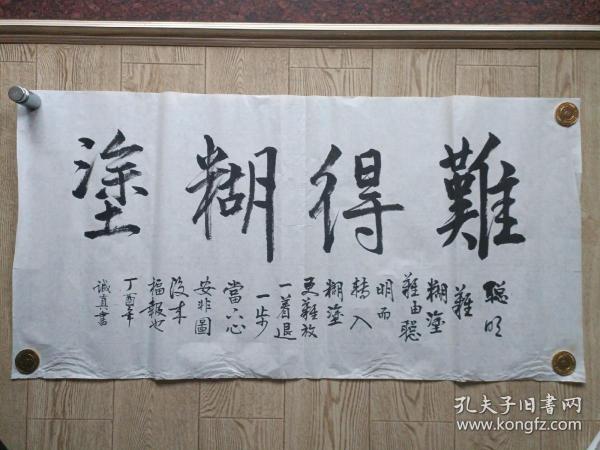 難得糊塗
聰明
難
糊塗
難由聰
明而
轉入
糊塗
更難放
一著退
一步
當心
安非圖
後來
福報也
丁酉年
誠真書
孔夫子旧书网
www.kongfz.com